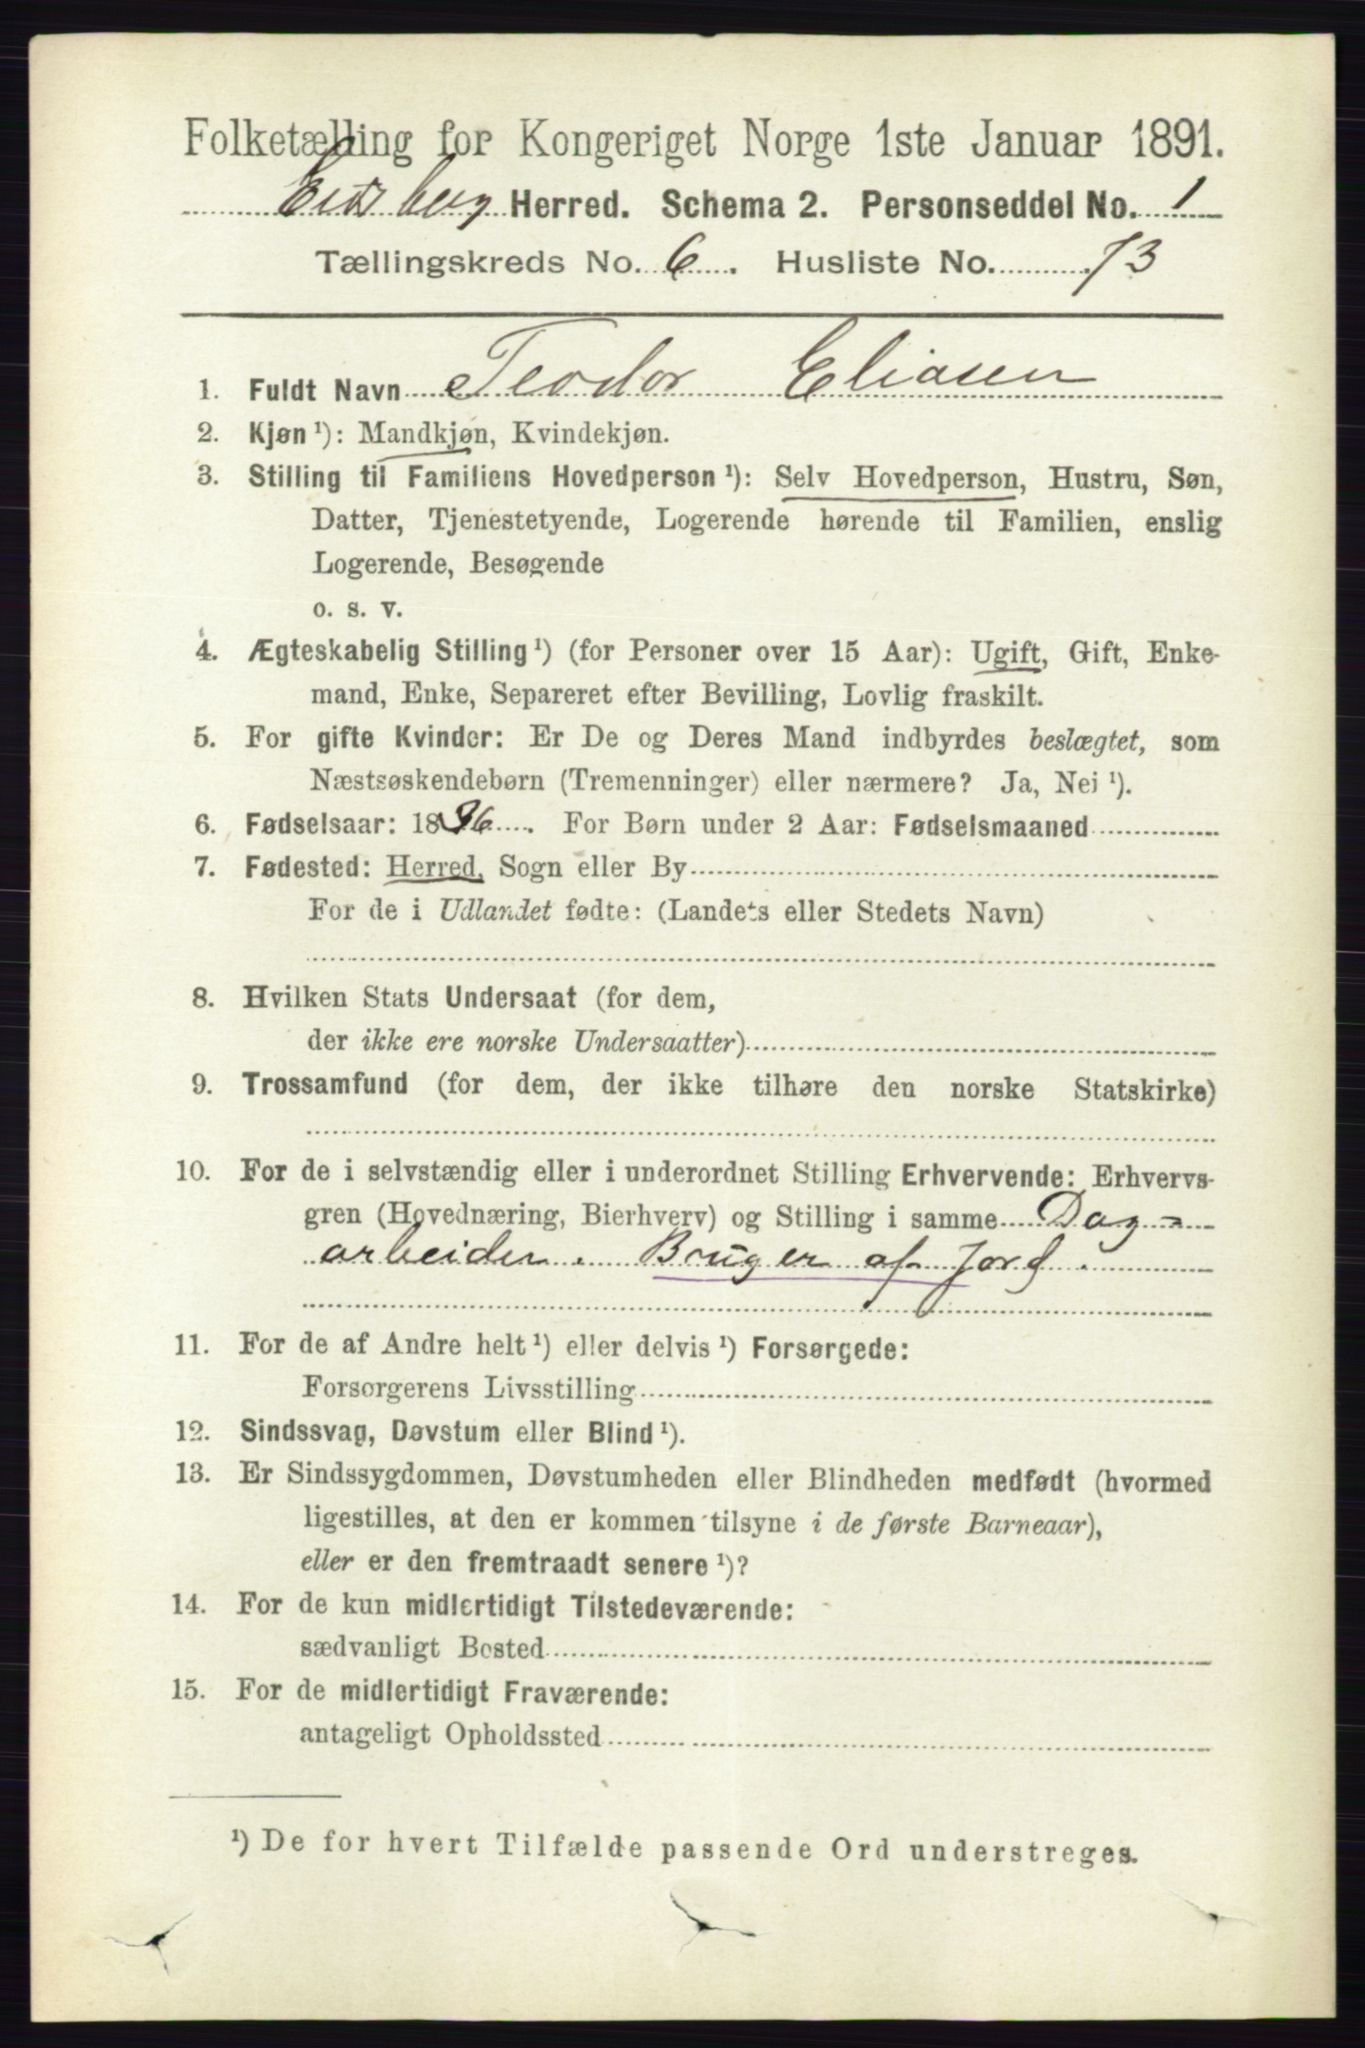 Folketælling for Kongeriget Norge 1ste Januar 1891.
Eidsberg Herred. Schema 2. Personseddel No. 1
Tællingskreds No. 6. Husliste No. 73
1. Fuldt Navn Teodor Eliasen
2. Kjøn ¹): Mandkjøn, Kvindekjøn.
3. Stilling til Familiens Hovedperson ¹): Selv Hovedperson, Hustru, Søn,
Datter, Tjenestetyende, Logerende hørende til Familien, enslig
Logerende, Besøgende
o. s. v.
4. Ægteskabelig Stilling ¹) (for Personer over 15 Aar): Ugift, Gift, Enke-
mand, Enke, Separeret efter Bevilling, Lovlig fraskilt.
5. For gifte Kvinder: Er De og Deres Mand indbyrdes beslægtet, som
Næstsøskendebørn (Tremenninger) eller nærmere? Ja, Nei ¹).
6. Fødselsaar: 1836. For Børn under 2 Aar: Fødselsmaaned
7. Fødested: Herred, Sogn eller By
For de i Udlandet fødte: (Landets eller Stedets Navn)
8. Hvilken Stats Undersaat (for dem,
der ikke ere norske Undersaatter)
9. Trossamfund (for dem, der ikke tilhøre den norske Statskirke)
10. For de i selvstændig eller i underordnet Stilling Erhvervende: Erhvervs-
gren (Hovednæring, Bierhverv) og Stilling i samme Dag-
arbeider. Bruger af Jord.
11. For de af Andre helt ¹) eller delvis ¹) Forsørgede:
Forsorgerens Livsstilling
12. Sindssvag, Døvstum eller Blind ¹).
13. Er Sindssygdommen, Døvstumheden eller Blindheden medfødt (hvormed
ligestilles, at den er kommen tilsyne i de første Barneaar),
eller er den fremtraadt senere ¹)?
14. For de kun midlertidigt Tilstedeværende:
sædvanligt Bosted
15. For de midlertidigt Fraværende:
antageligt Opholdssted
¹) De for hvert Tilfælde passende Ord understreges.